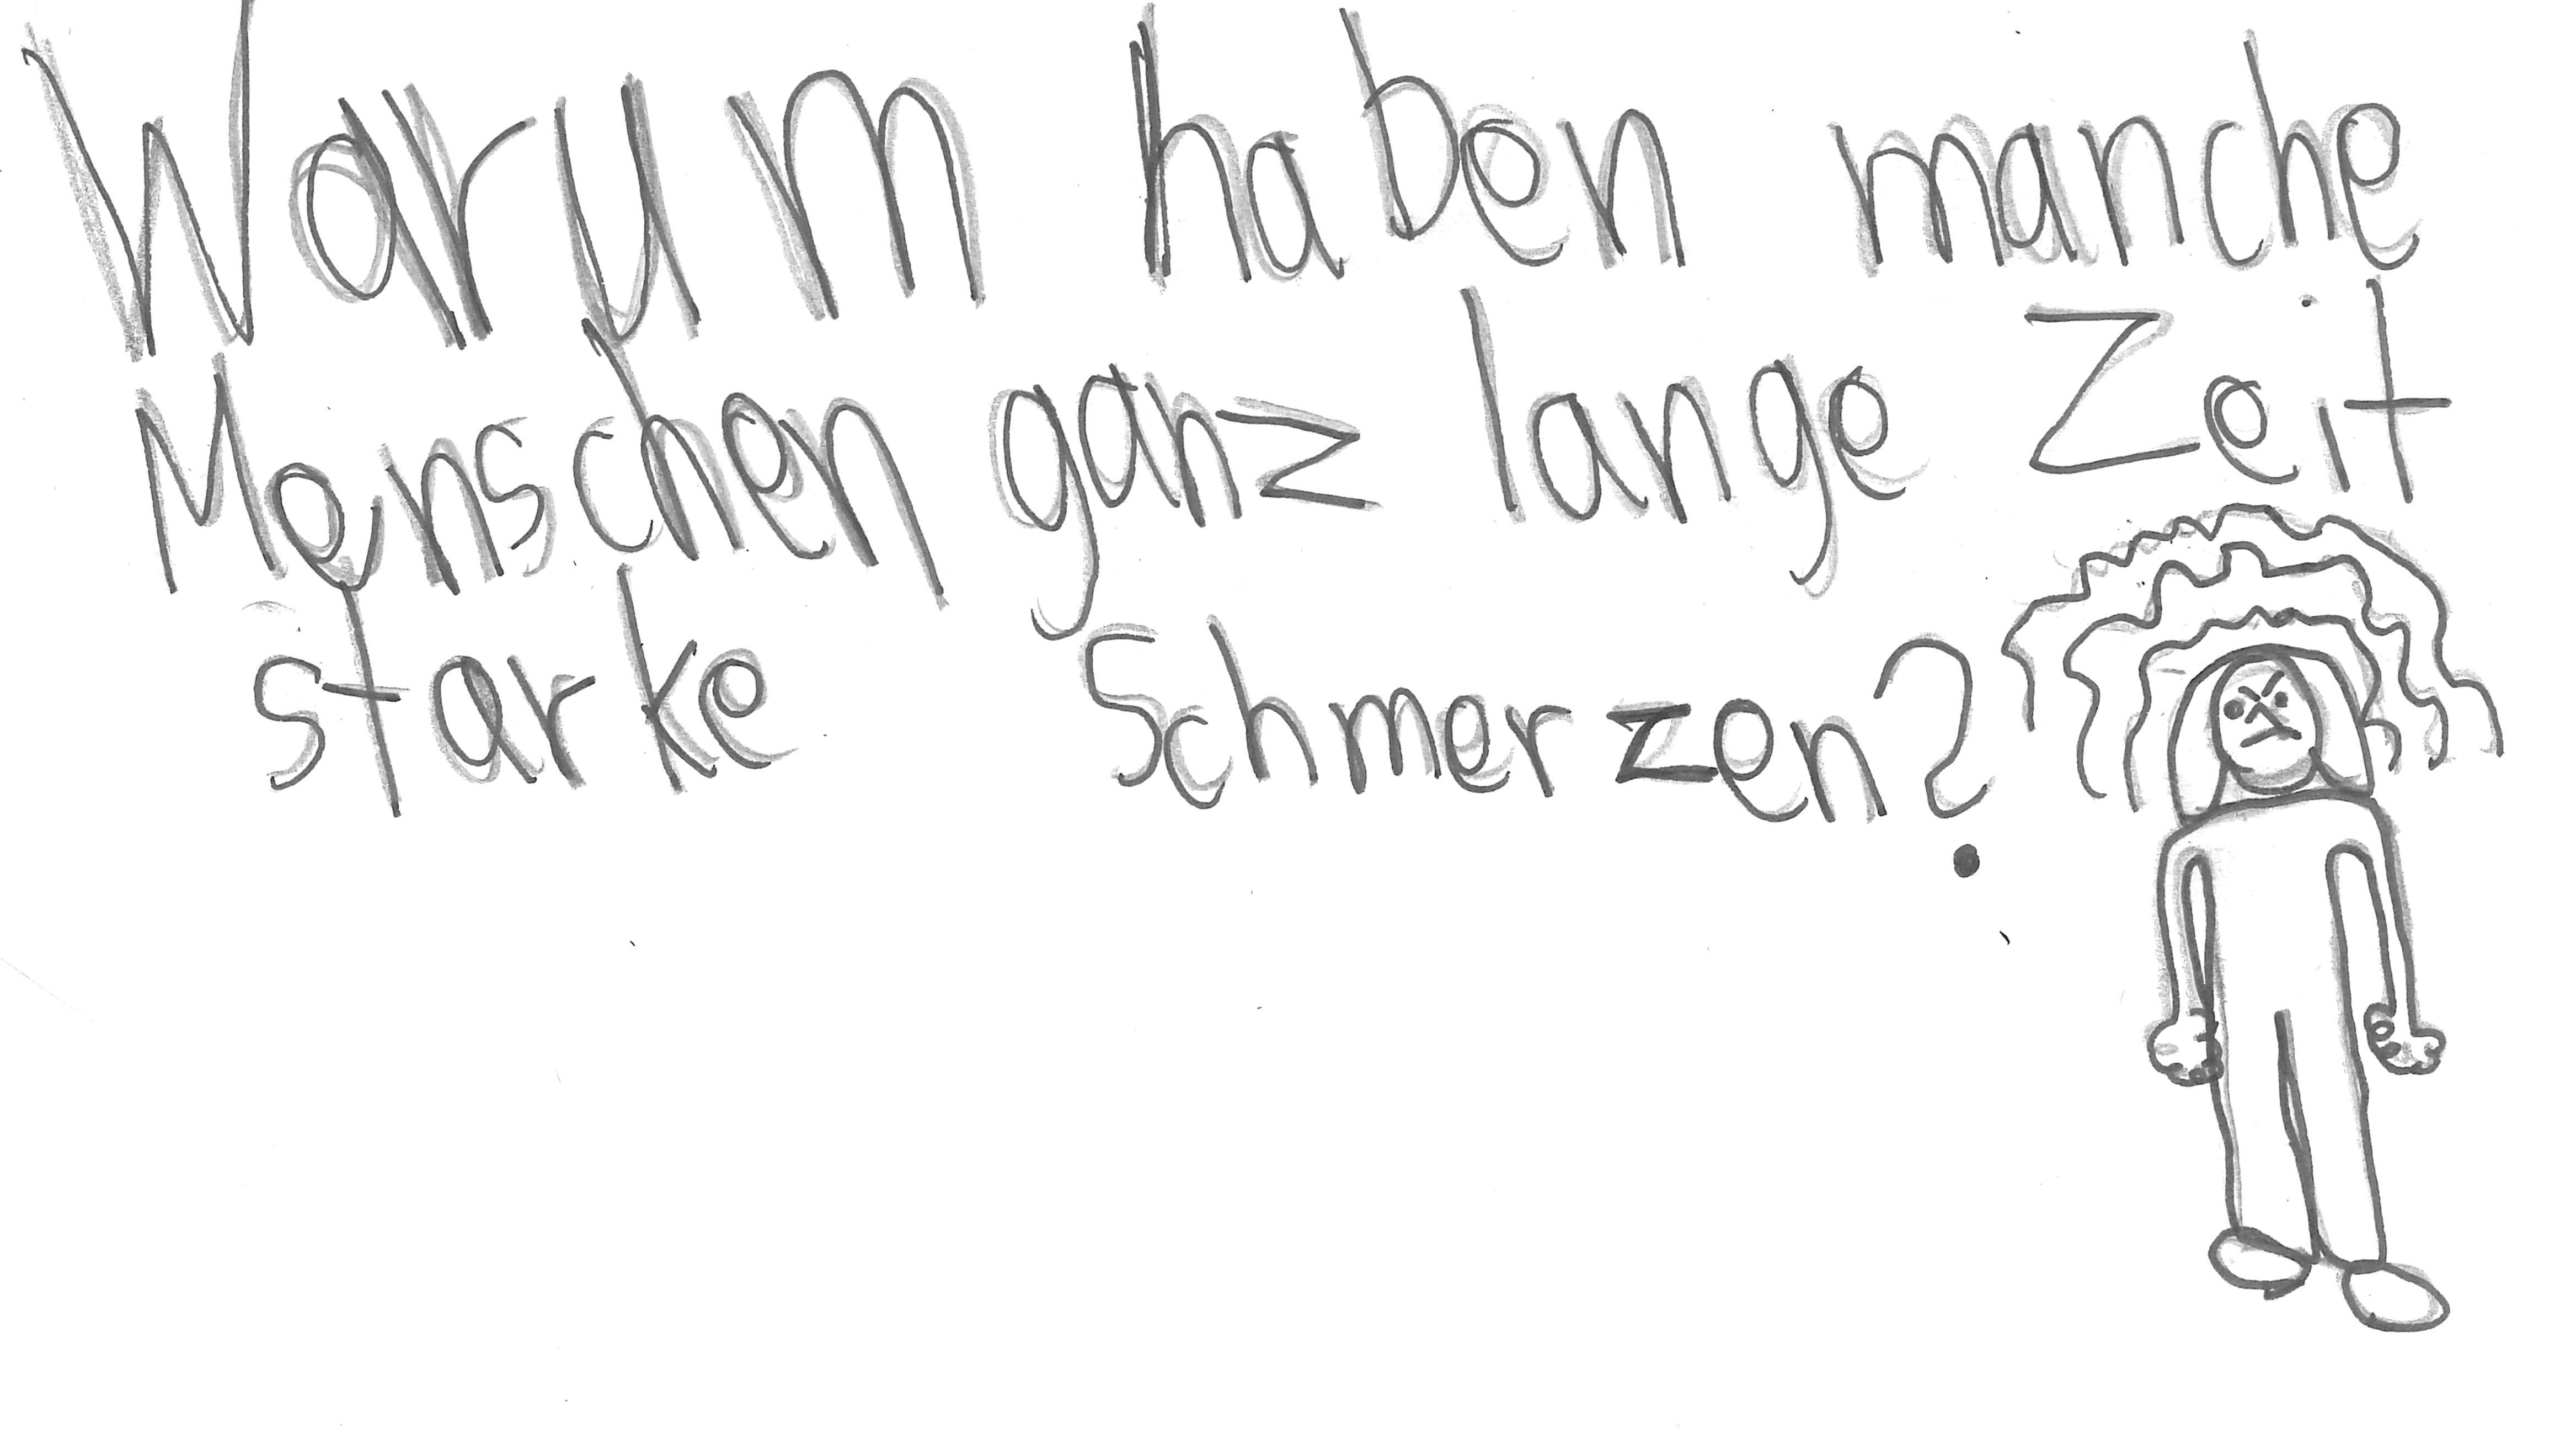 Warum haben manche
Menschen ganz lange Zeit
starke Schmerzen?